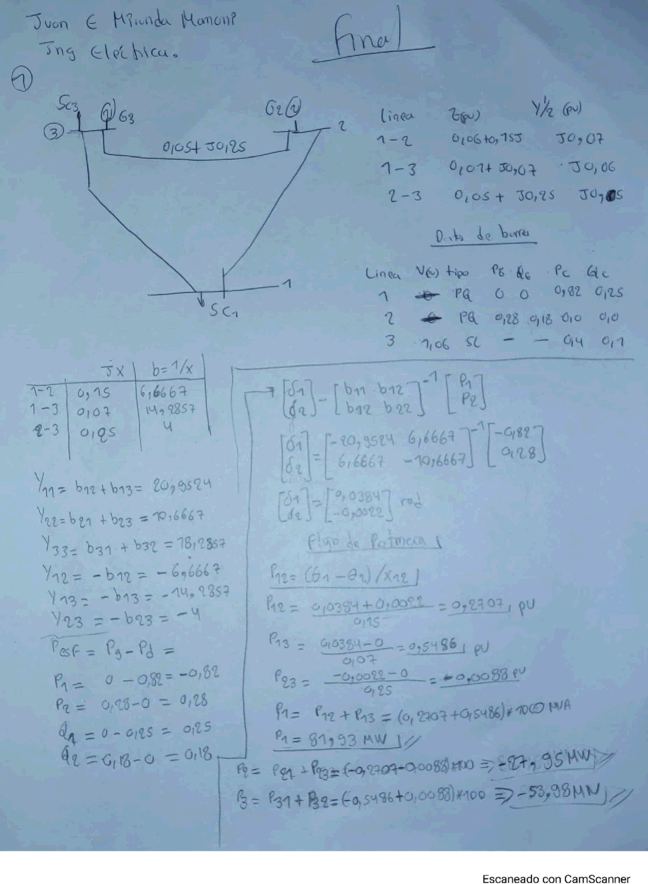 Juan E Miranda Mamani
Ing Eléctrica.
final
1
SC3
G3
3
G2
2
0,05+J0,25
1
SC1
Linea Z(pu) Y/2 (pu)
1-2 0,06+0,15J J0,07
1-3 0,01+J0,07 J0,06
2-3 0,05 + J0,25 J0,05
Dato de barras
Linea V(v) tipo PG QG PC QC
1 PQ 0 0 0,82 0,25
2 PQ 0,28 0,18 0,0 0,0
3 1,06 SL - - 0,4 0,1
JX b=1/x
1-2 0,15 6,6667
1-3 0,07 14,2857
2-3 0,25 4
Y11= b12+b13= 20,9524
Y22= b21 + b23 = 10,6667
Y33= b31 + b32 = 18,2857
Y12= -b12= -6,6667
Y13= -b13= -14,2857
Y23 = -b23 = -4
Pesp = Pg - Pd =
P1 = 0 - 0,82= -0,82
P2 = 0,28-0 = 0,28
Q1 = 0 - 0,25 = 0,25
Q2= 0,18-0 = 0,18
[δ1 δ2] = [b11 b12 b12 b22]-1 [P1 P2]
[δ1 δ2] = [-20,9524 6,6667 6,6667 -10,6667]-1 [-0,82 0,28]
[δ1 δ2] = [0,0384 -0,0022] rad
Flujo de Potencia
P12= (θ1 - θ2) / X12
P12= 0,0384+0,0022 / 0,15 = 0,2707, pu
P13 = 0,0384-0 / 0,07 = 0,5486, pu
P23= -0,0022-0 / 0,25 = -0,0088 pu
P1= P12 + P13 = (0,2707+0,5486)*100 MVA
P1 = 81,93 MW
P2= P21 + P23= (-0,2707-0,0088)*100 => -27,95MW
P3= P31+P32= (-0,5486+0,0088)*100 => -53,98MW
Escaneado con CamScanner